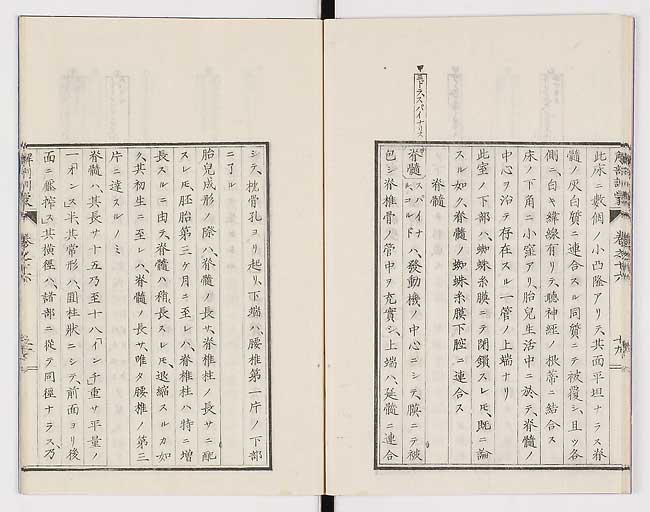 此床ニ數個ノ小凸隆アリテ、其面平坦ナラス脊
髓ノ灰白質ニ連合スル同質ニテ被覆シ、且ツ各
側ニ、白キ緯線有リテ、聽神經ノ根蒂ニ結合ス
床ノ下角ニ小窪アリ、胎兒生活中ニ於テ、脊髓ノ
中心ヲ沿テ存在スル一管ノ上端ナリ
此室ノ下部ハ、蜘蛛糸膜ニテ閉鎖スレ𪜈、既ニ論
スル如ク、脊髓ノ蜘蛛糸膜下腔ニ連合ス
脊髓
脊髓スパイナルコルドハ、發動機ノ中心ニシテ、膜ニテ被
包シ脊椎骨ノ管中ヲ充實シ、上端ハ、延髓ニ連合
シテ、枕骨孔ヨリ起リ、下端ハ、腰椎第一片ノ下部
ニ了ル
胎兒成形ノ際ハ、脊髓ノ長サ、脊椎柱ノ長サニ配
スレ𪜈、胚胎第三ケ月ニ至レハ、脊椎柱ハ特ニ增
長スルニ由テ、脊髓ハ稍長スレ𪜈、退縮スルカ如
ク、其初生ニ至レハ、脊髓ノ長サ、唯タ腰椎ノ第三
片ニ達スルノミ
脊髓ハ、其長サ十五乃至十八「インチ」重サ平量ノ
一「オンス」半其常形ハ、圓柱狀ニシテ、前面ヨリ後
面ニ壓搾ス、其橫徑ハ、諸部ニ從テ同徑ナラス、乃
解剖訓蒙
卷之十六
十九